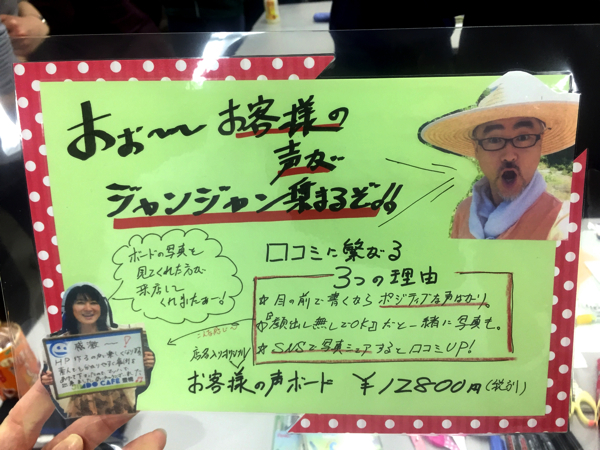 おぉ〜 お客様の
声が
ジャンジャン集まるぞ!!
ボードの写真を
見てくれた方が
来店して
くれましたぁー!
口コミに繋がる
3つの理由
☆ 目の前で書くなら ポジティブな声ばかり。
☆『顔出し無しでOK』だと一緒に写真も。
☆ SNSで写真シェアすると口コミUP!
こんな感じ
店名入りオリジナル
お客様の声ボード ¥12800円(税別)
感激〜!